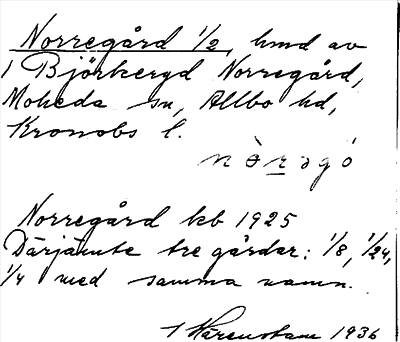 Norregård 1/2, hmd av
1 Björkeryd Norregård,
Moheda sn, Allbo hd,
Kronobs l.
nòrəgó
Norregård kb 1925
Därjämte tre gårdar: 1/8, 1/24,
1/4 med samma namn.
Härenstam 1936